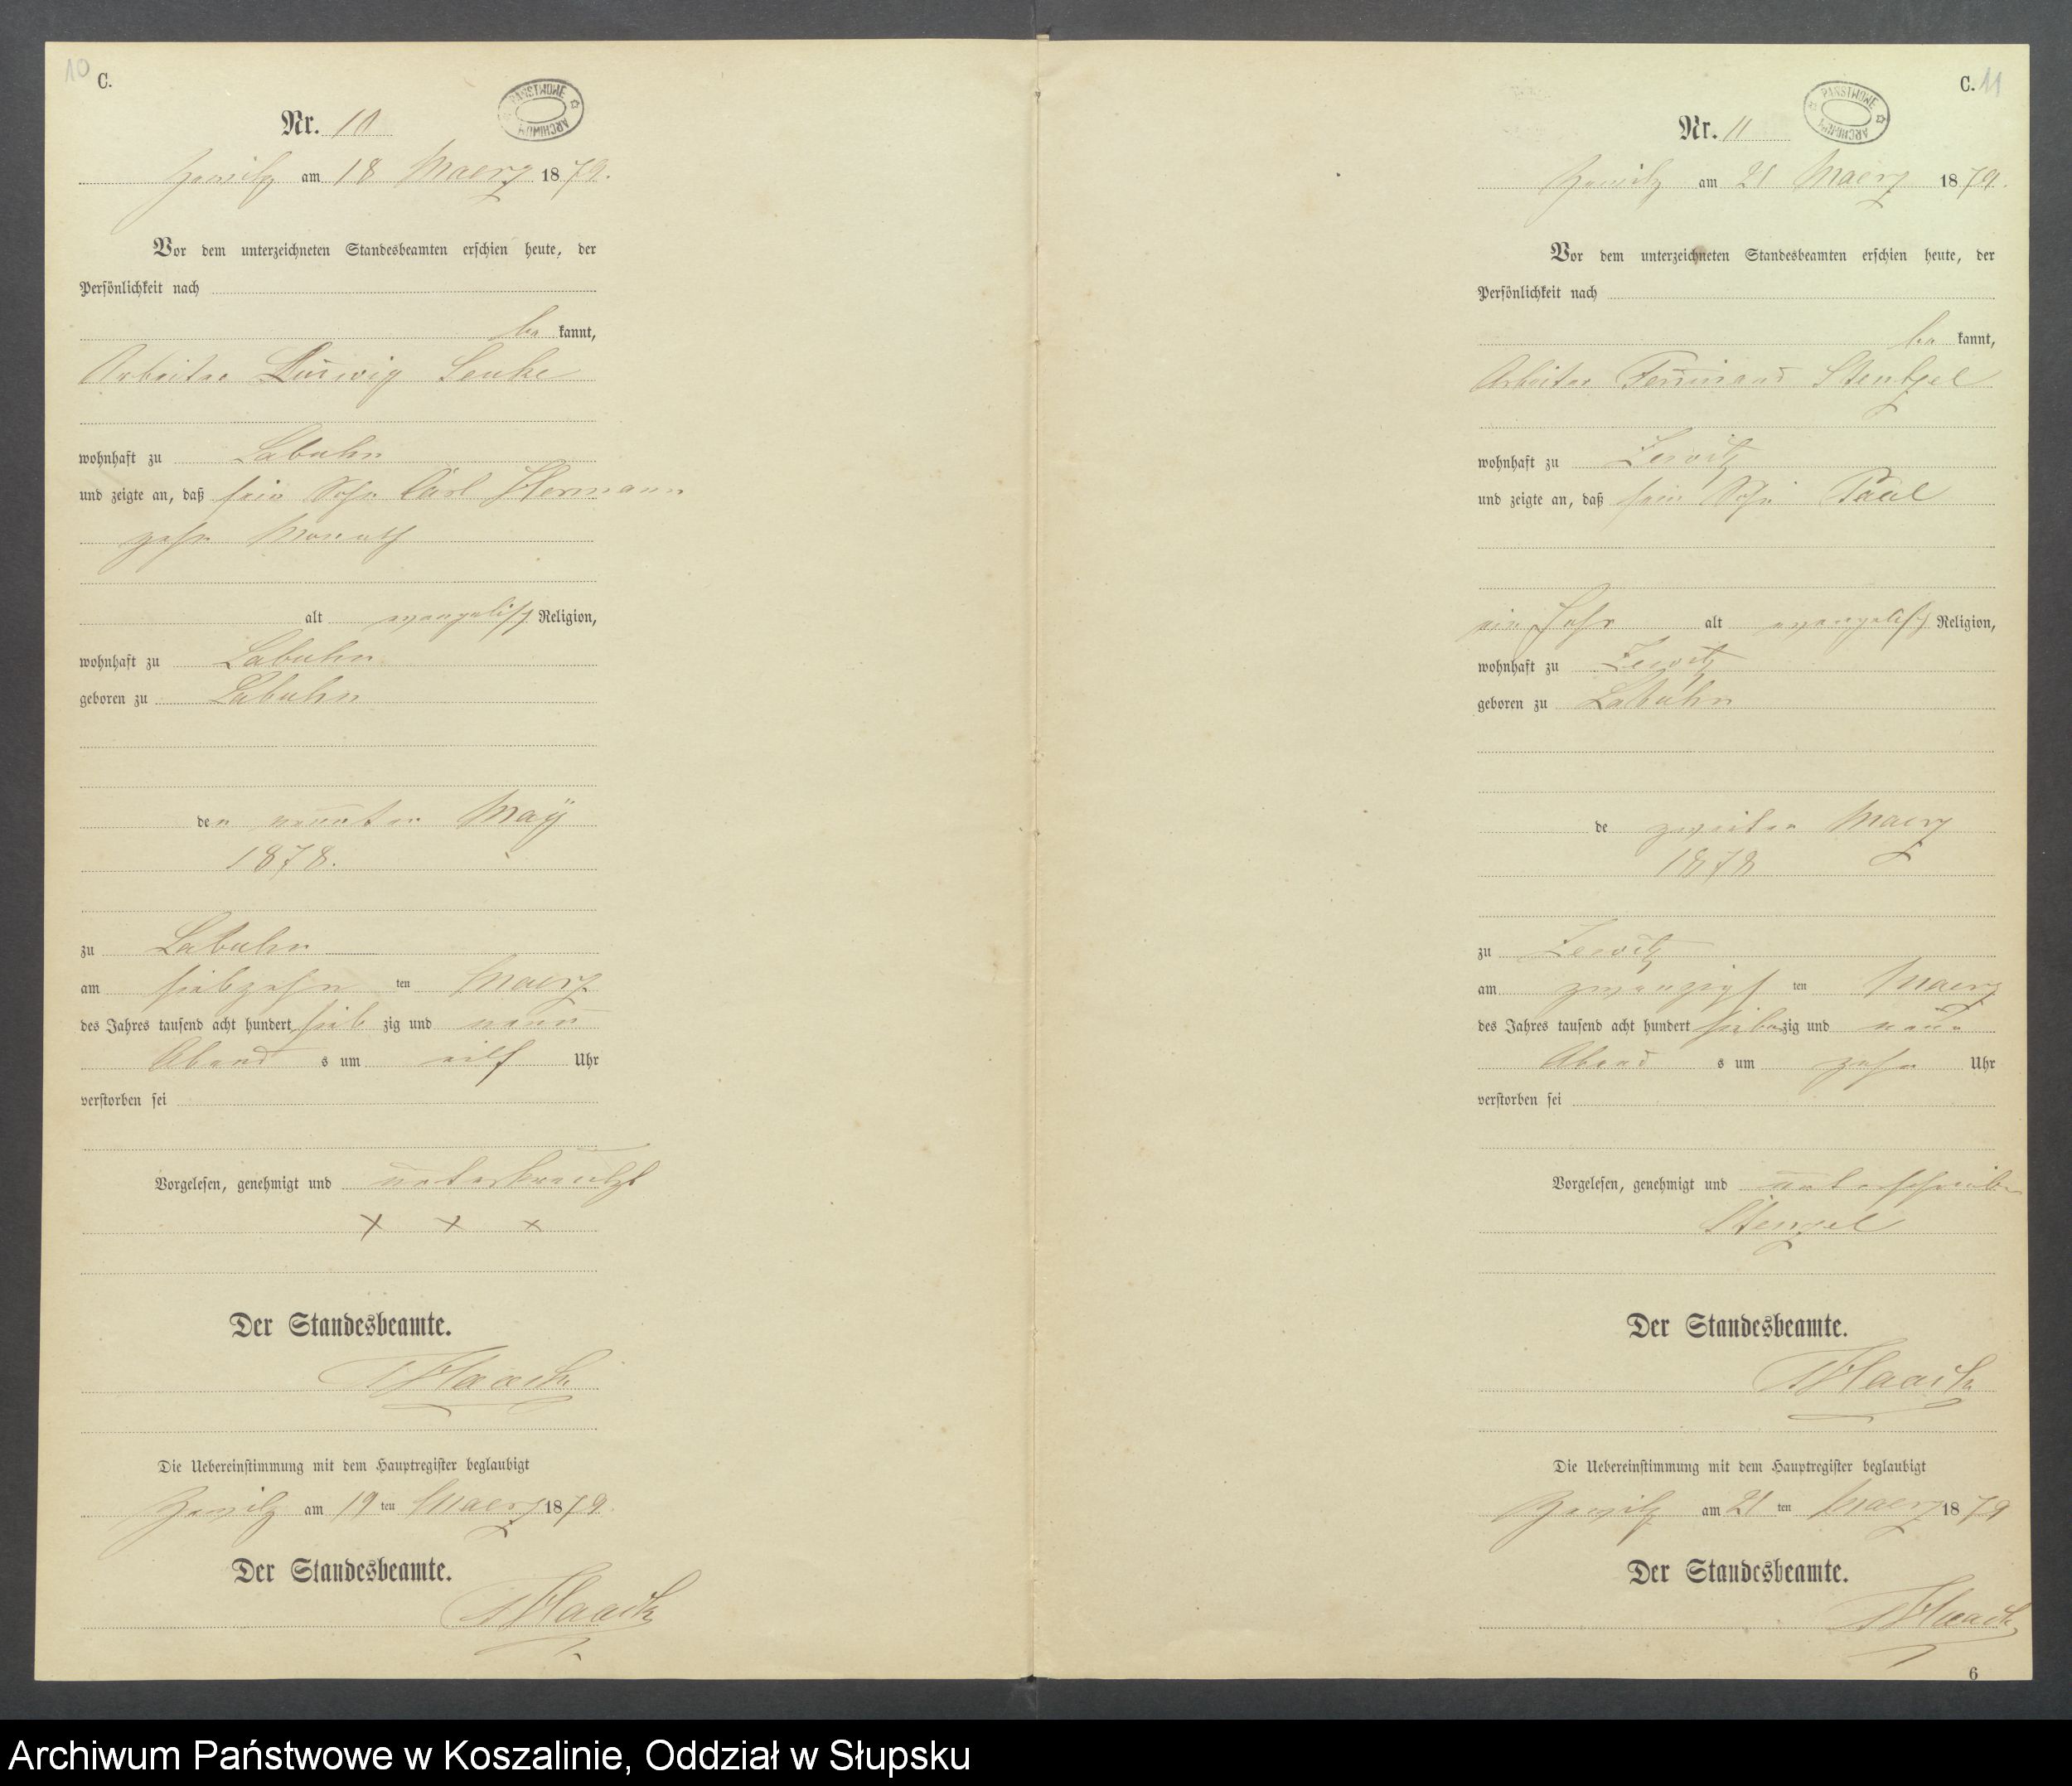 10
C.
PAŃSTWOWE ARCHIWUM
Nr. 10
am 18 Maerz 1879.
Vor dem unterzeichneten Standesbeamten erschien heute, der
Persönlichkeit nach
be kannt,
Arbeiter Ludwig Lenke
wohnhaft zu Labuhn
und zeigte an, daß sein Sohn Carl Hermann
zehn Monath
alt evangelisch Religion,
wohnhaft zu Labuhn
geboren zu Labuhn
den neunten Maÿ
1878.
zu Labuhn
am siebzehn ten Maerz
des Jahres tausend acht hundert sieb zig und neun
Abend s um eilf Uhr
verstorben sei
Vorgelesen, genehmigt und unterkreutzt
x x x
Der Standesbeamte.
Haack
Die Uebereinstimmung mit dem Hauptregister beglaubigt
am 19 ten Maerz 1879.
Der Standesbeamte.
Haack
C. 11
PAŃSTWOWE ARCHIWUM
Nr. 11
am 21 Maerz 1879.
Vor dem unterzeichneten Standesbeamten erschien heute, der
Persönlichkeit nach
be kannt,
Arbeiter Ferdinand Stentzel
wohnhaft zu Zewitz
und zeigte an, daß sein Sohn Paul
ein Jahr alt evangelisch Religion,
wohnhaft zu Zewitz
geboren zu Labuhn
de zweiten Maerz
1878
zu Zewitz
am zwanzigs ten Maerz
des Jahres tausend acht hundert siebenzig und neun
Abend s um zehn Uhr
verstorben sei
Vorgelesen, genehmigt und unterschrieben
Stenzel
Der Standesbeamte.
Haack
Die Uebereinstimmung mit dem Hauptregister beglaubigt
am 21 ten Maerz 1879
Der Standesbeamte.
Haack
6
Archiwum Państwowe w Koszalinie, Oddział w Słupsku